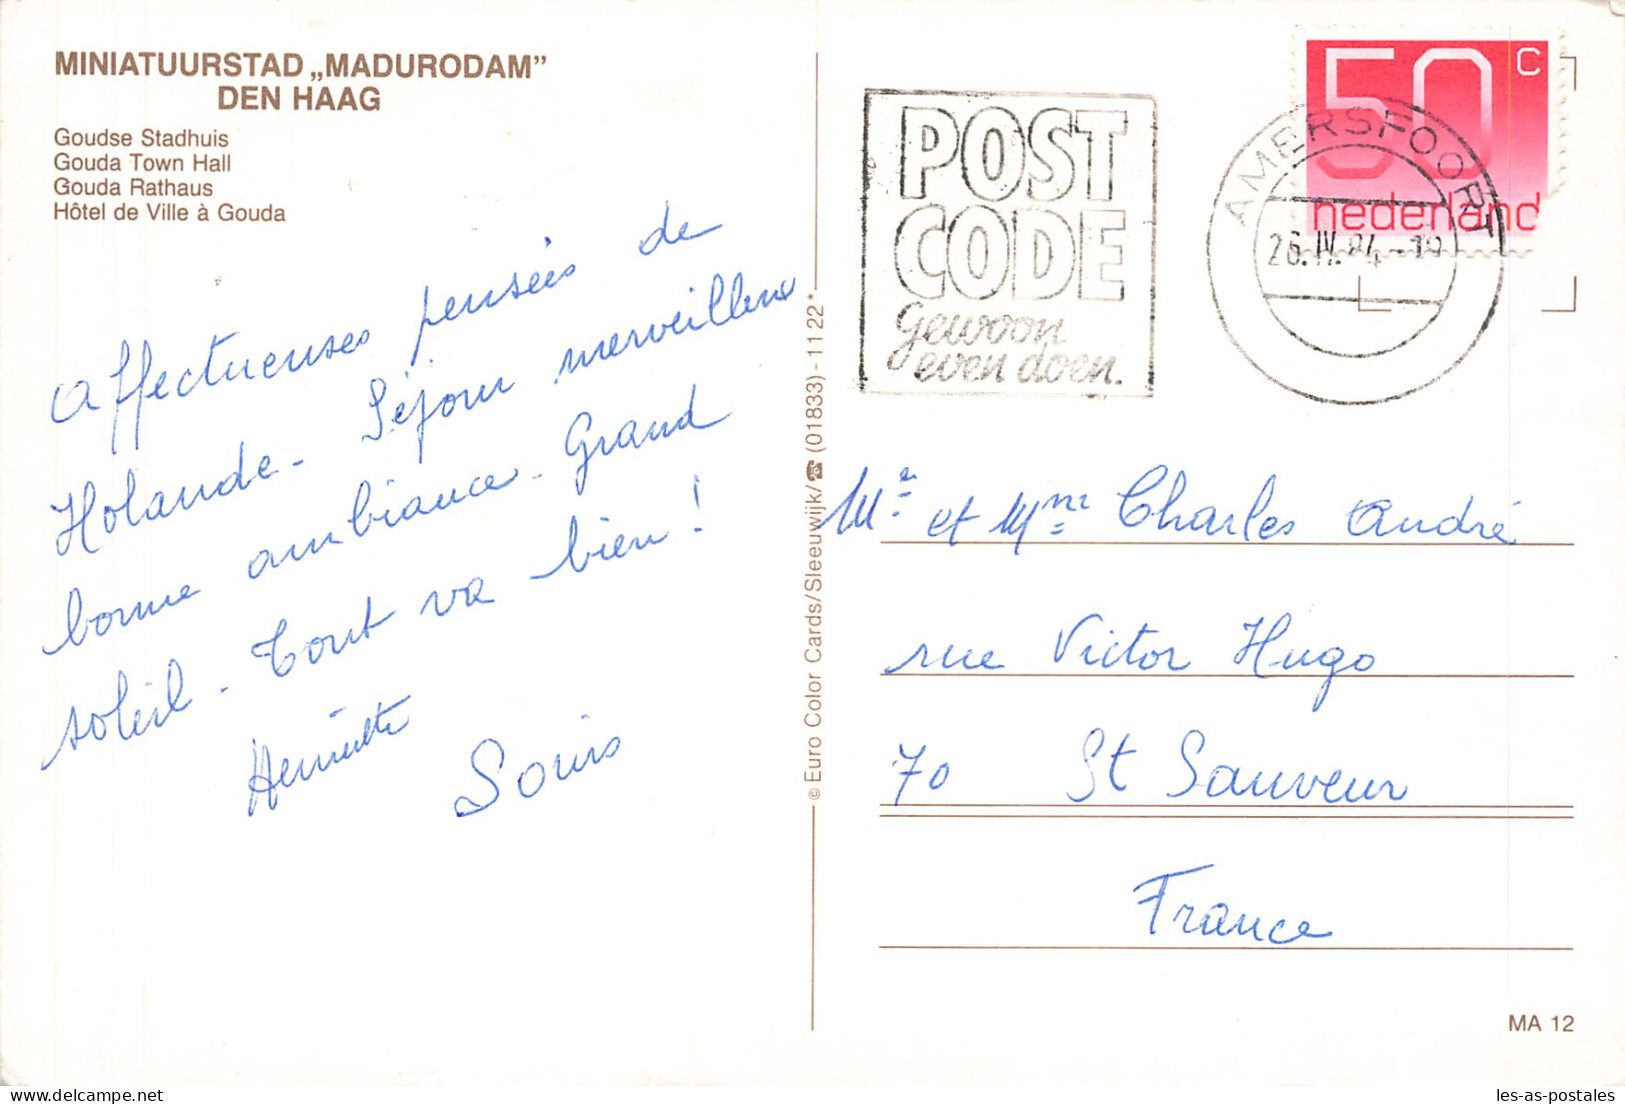 MINIATUURSTAD „MADURODAM”
DEN HAAG
Goudse Stadhuis
Gouda Town Hall
Gouda Rathaus
Hôtel de Ville à Gouda
Affectueuses pensées de
Holande - Séjour merveilleux
bonne ambiance - Grand
soleil - Tout va bien !
Henriette
Louis
© Euro Color Cards/Sleeuwijk/☎ (01833) - 11 22*
POST
CODE
gewoon
even doen.
50 C
nederland
AMERSFOORT
26.IV.84 - 19
Mr et Mme Charles André
rue Victor Hugo
70 St Sauveur
France
MA 12
les-as-postales